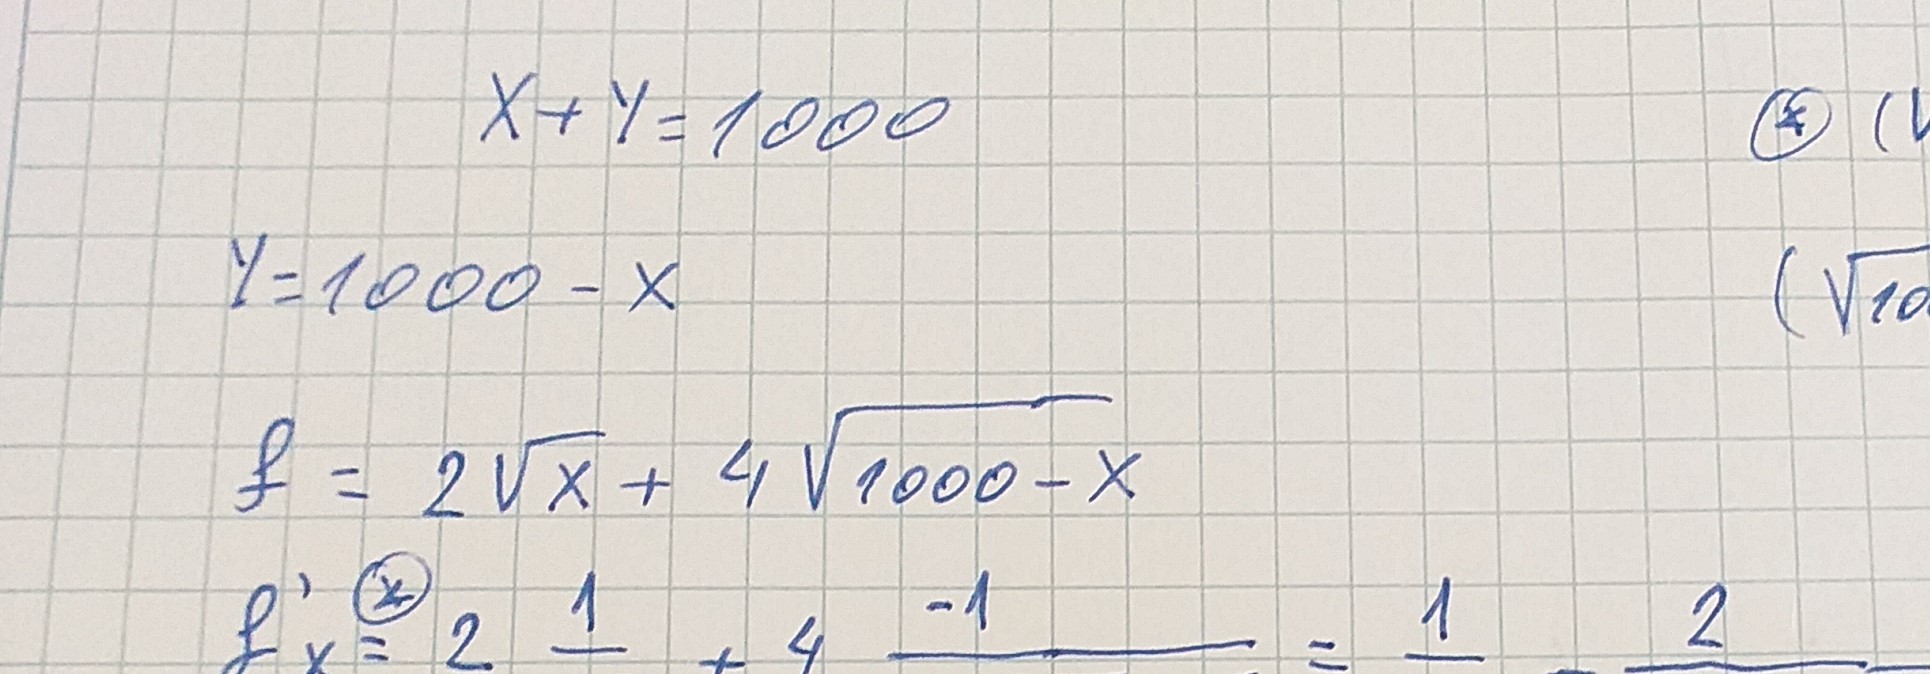 X + Y = 1000
⊛ (√
Y = 1000 - X
(√10
f = 2√x + 4√1000 - X
f'x ⊛= 2 1 + 4 -1 = 1 - 2